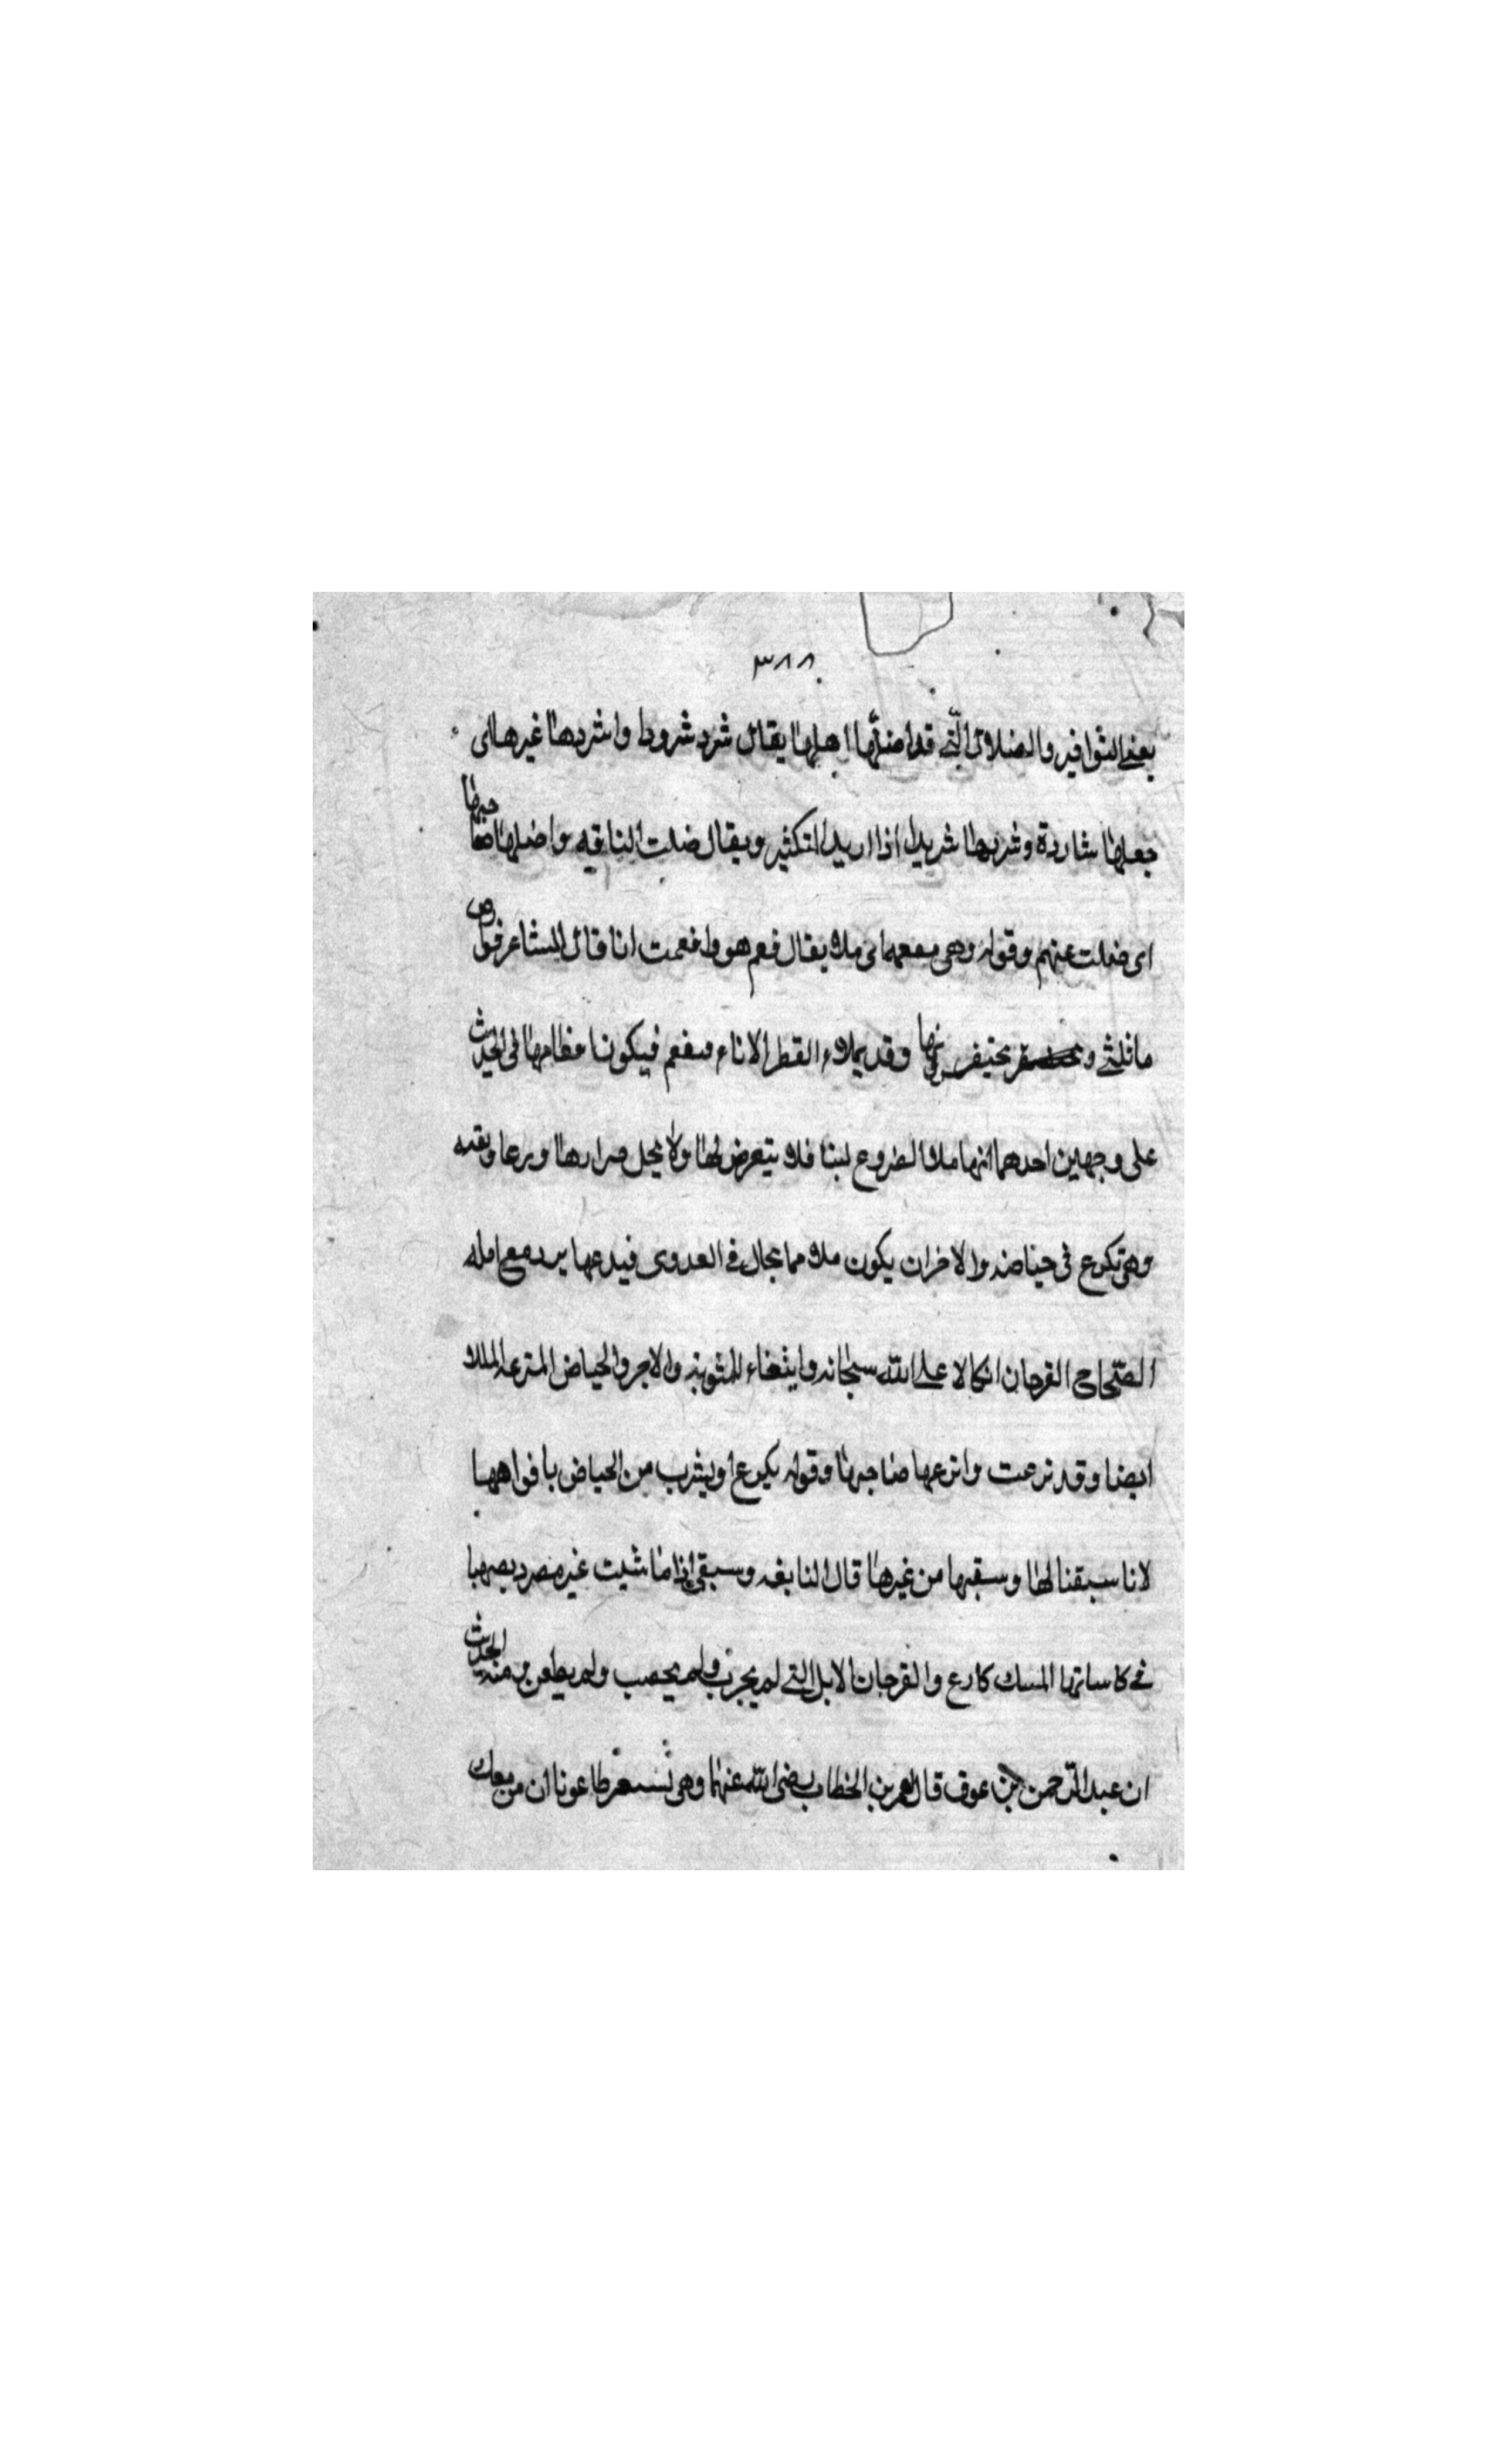 ٣٨٨
يعني النوافير والضلال الّتي قد اضلّها اهلها يقال شرد شرودا واشردها غيرها اى
جعلها شاردة وشردها شريدا اذا اريد التكثير ويقال ضلت الناقه واضلها صاحبها
اى ضلت عنهم وقوله وهى مفعمه اى ملا يقال فعم هو وافعمت انا قال الشاعر فوارص
ماتلتي و بحتيفر ونها وقد يملاء القطر الاناء فيفعم فيكون عظامها فى الحديث
على وجهين احدهما انها ملا الضروع لبنا فلا يتعرض لها ولا يحل صرارها وبرعا وبقيه
وهى تكرع فى حياضه والاخران يكون ملا مما بحال فى العدوى فيدعها يرد مع امله
الصحاح القرحان اتكالا على الله سبحانه وابتغاء للمثوبة والاجر والحياض المترعه الملا
ايضا وقد ترعت واترعها صاحبها وقوله يكرع اى يشرب من الحياض بافواهها
لانا سبقنا لها وسقيها من غيرها قال النابغه وسبقى اذا ما شيت غير مصرد بصهبا
فى كاساتها المسك كارع والقرحان الابل التي لم يجرب ولم يحصب ولم يطعن منه الحديث
ان عبد الرّحمن بن عوف قال لعمر بن الخطاب رضى الله عنهما وهى تستعر طاعونا ان من معك